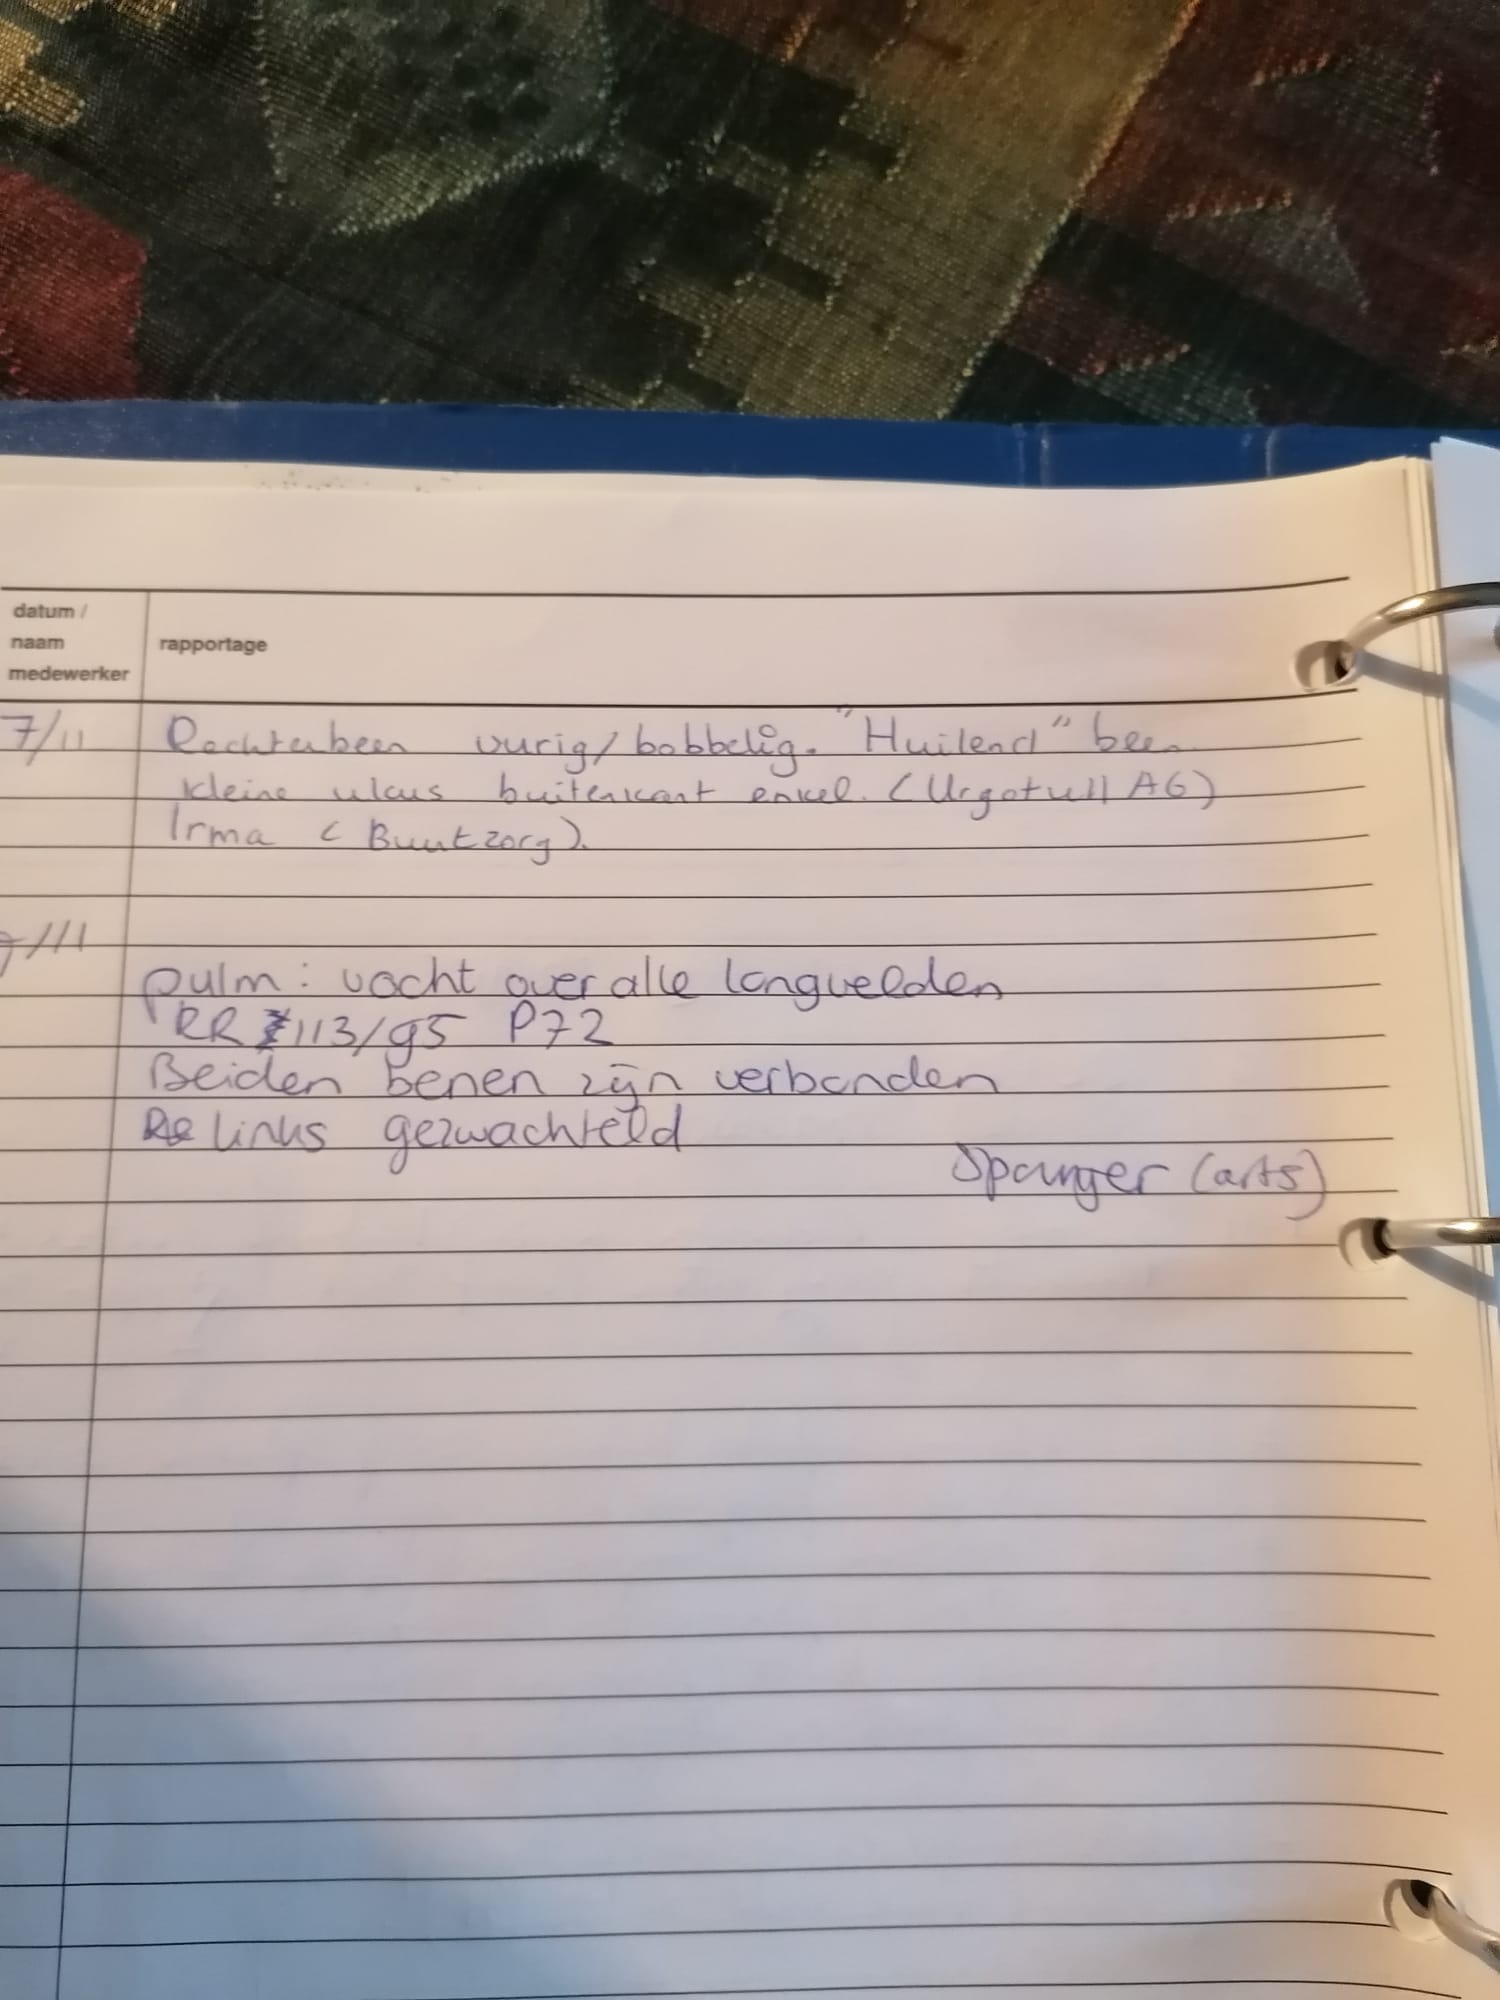 datum /
naam
medewerker
rapportage
7/11 Rechterbeen vurig/bobbelig. "Huilend" been
kleine ulcus buitenkant enkel. (Urgotull AG)
Irma (Buurtzorg).
7/11
pulm: vocht over alle longvelden
RR 113/95 P72
Beiden benen zijn verbonden
links gezwachteld
(arts)